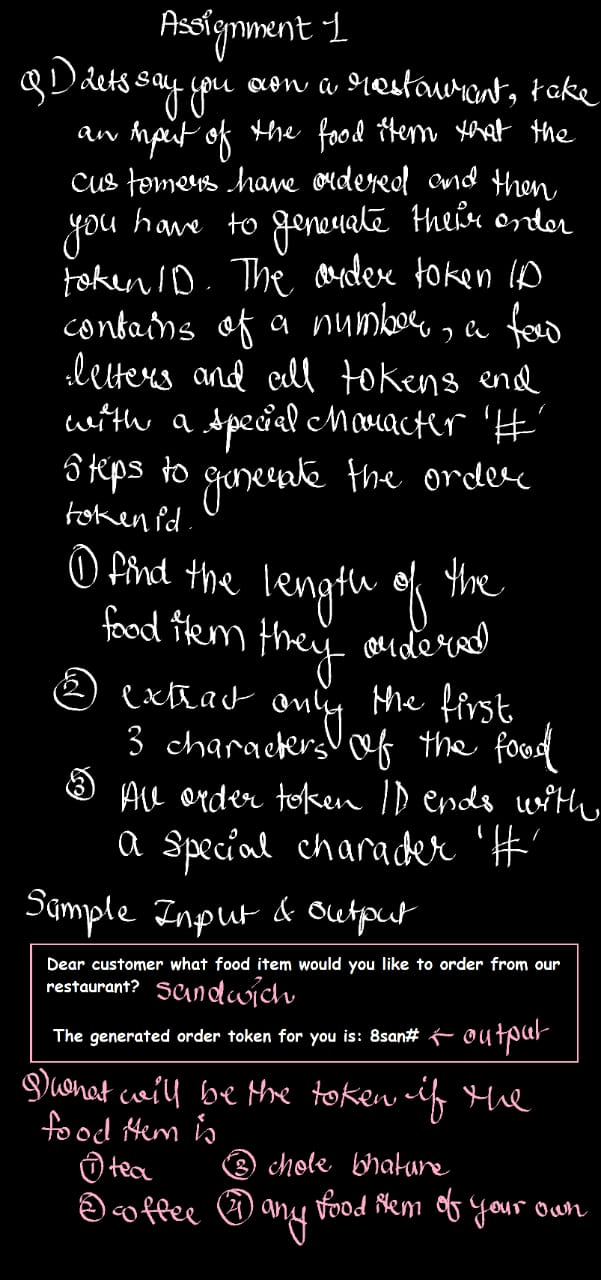 Assignment 1
Q1) Lets say you own a restaurant, take
an input of the food item that the
customers have ordered and then
you have to generate their order
token ID. The order token ID
contains of a number, a few
letters and all tokens end
with a special character '#'
Steps to generate the order
token id.
① find the length of the
food item they ordered
② extract only the first
3 characters of the food
③ All order token ID ends with
a special character '#'
Sample Input & Output
Dear customer what food item would you like to order from our
restaurant? Sandwich
The generated order token for you is: 8san# ← output
Q) what will be the token if the
food item is
① tea ③ chole bhature
② coffee ④ any food item of your own